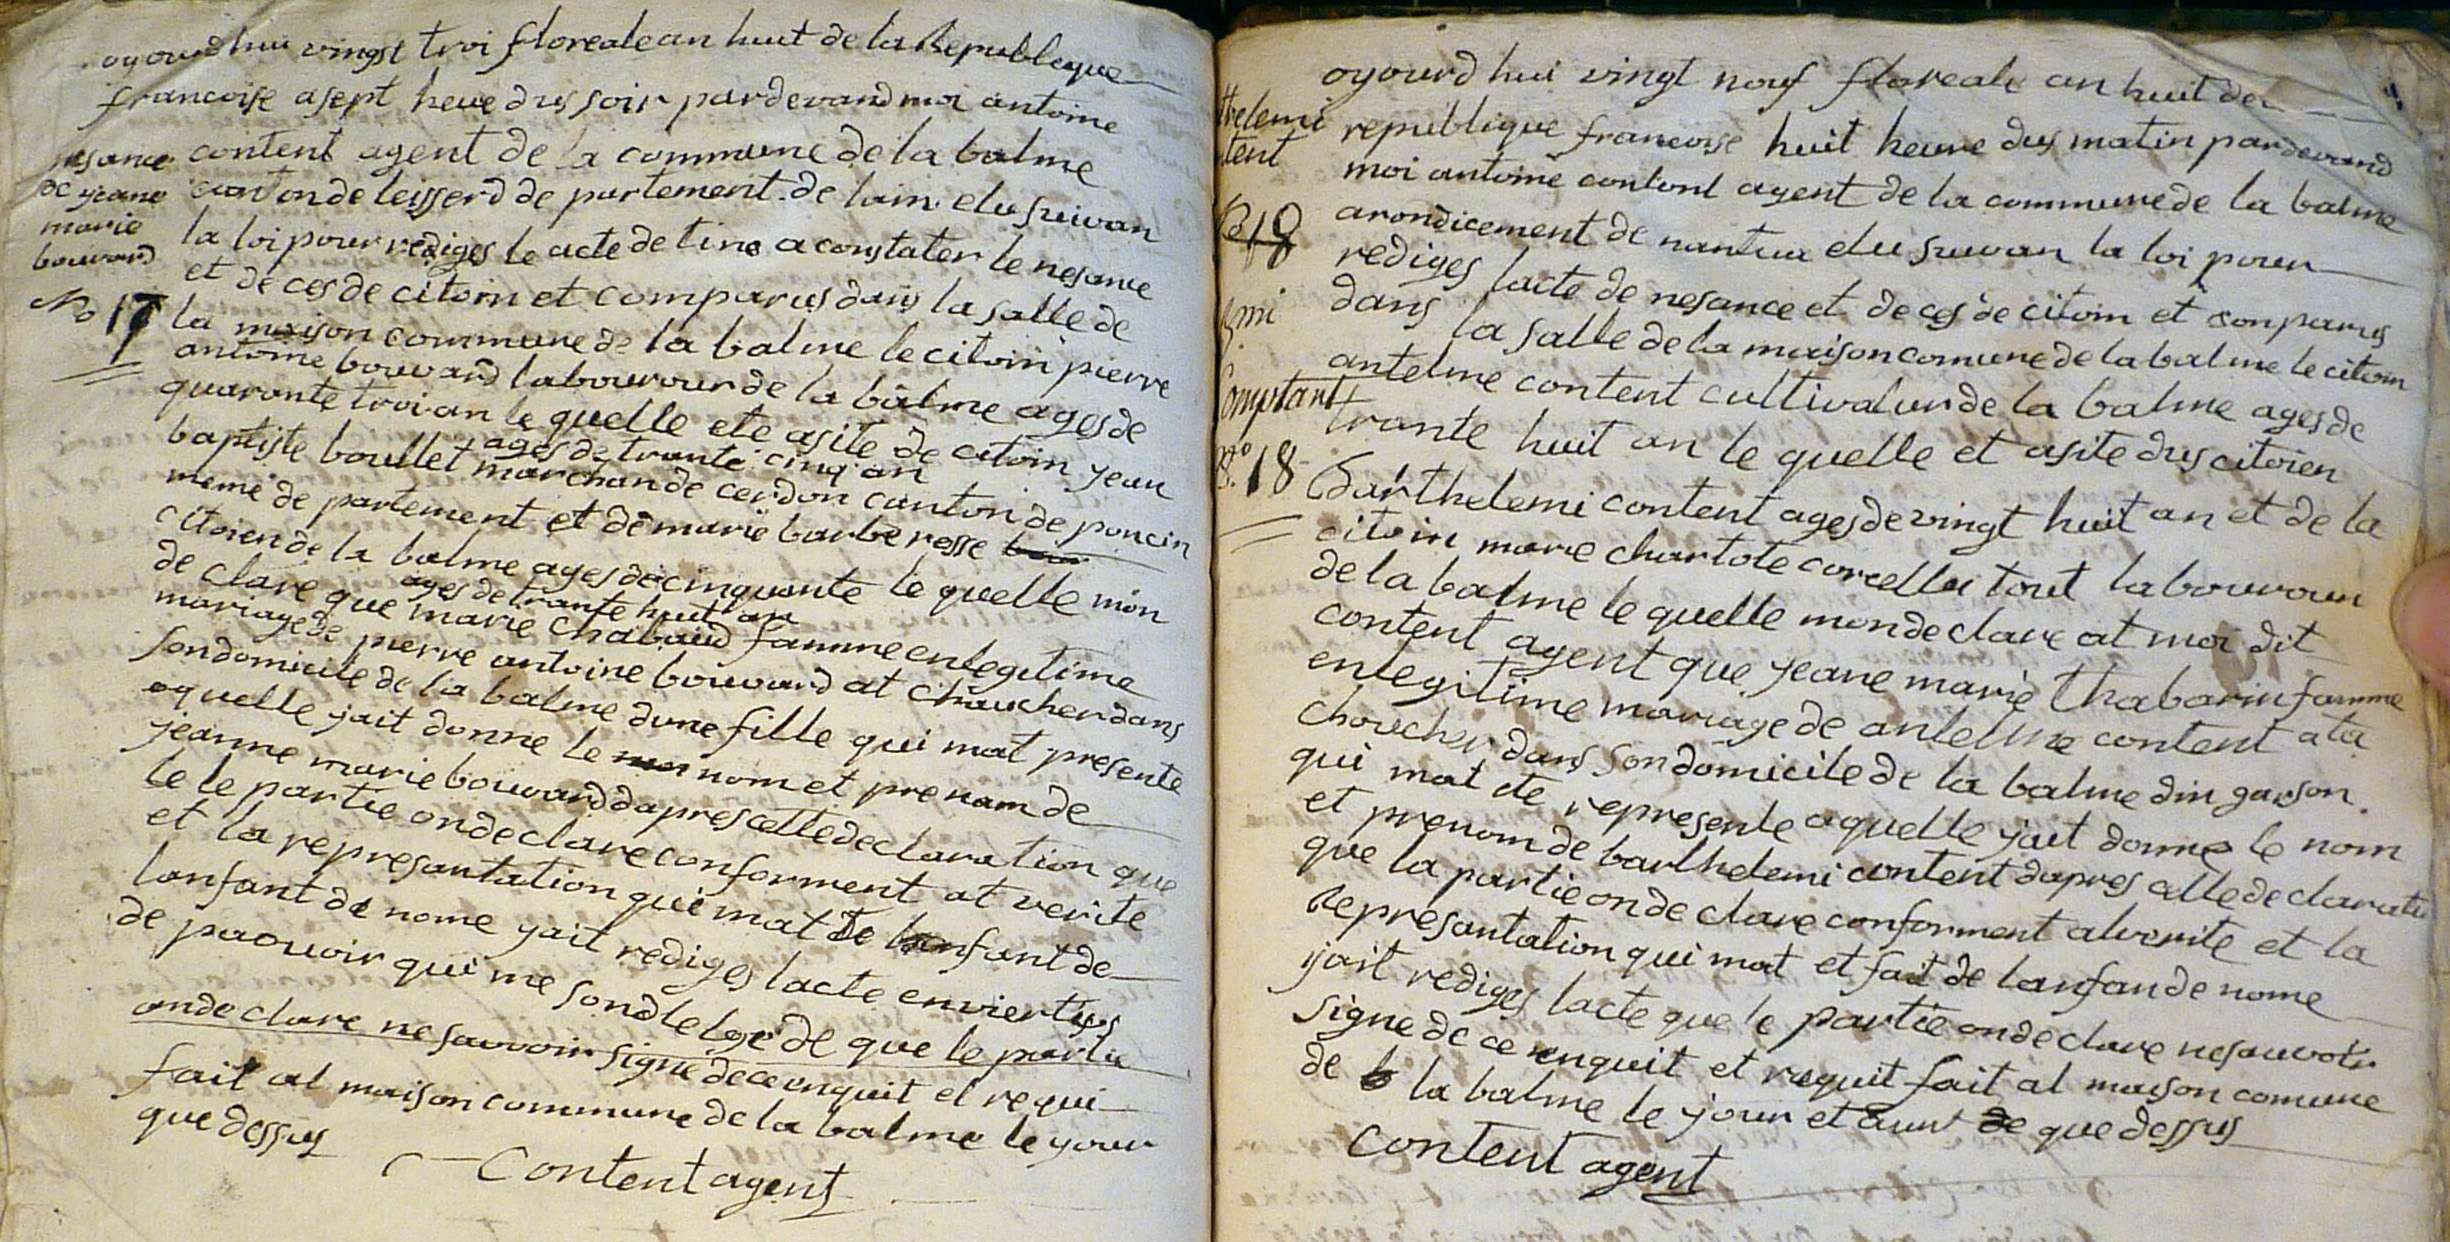 oyourdhui vingst troi floreale an huit de la Republeque
francoise a sept heure dus soir pardevand moi antoine
content agent de la commune de la balme
canton de leisserd de partement de lain elu suivan
la loi pour rediges le acte detine a constater le nesance
et de ces de citoin et comparus dans la salle de
la maison commune de la balme le citoin pierre
antoine bouvard labourour de la balme ages de
quarante troi an le quelle ete asite de citoin jean
ages de trante cinq an
baptiste boullet marchan de cerdon canton de poncin
meme de partement et de marie barbe resse
citoien de la balme ages de cinquante le quelle mon
ages de trante huit an
de clare que marie chabaud famme en legitime
mariage de pierre antoine bouvard at chaucher dans
son domicile de la balme dune fille qui mat presente
aquelle jait donne le nom et prenom de
jeanne marie bouvard dapres cette declaration que
le le partie on de clare conforment at verite
et la represantation qui mat te lanfant de
lanfant de nome jait rediges lacte en viertus
de paouvoir qui me sond le lege de que le partie
on de clare ne savoir signe de ce enquit et requi
fait at maison commune de la balme le your
que dessus
Content agent
nesance
de yeane
marie
bouvard
No 17
oyourd hui vingt nouf floreale an huit de
republique francoise huit heure dus matin pardevand
moi antoine content agent de la commune de la balme
arondicement de nantua elu suivan la loi pour
rediges lacte de nesance et de ces de citoin et conparus
dans la salle de la maison comune de la balme le citoin
antelme content cultivaleur de la balme ages de
trante huit an le quelle et asite dus citoien
Barthelemi content ages de vingt huit an et de la
citoin marie charlote corcellei tout labourour
de la balme le quelle mon de clare at moi dit
content agent que yeane marie thabarin famme
en legitime mariage de antelme content a la
choucher dans son domicile de la balme din garson
qui mat ete represente aquelle jait donne le nom
et prenom de barthelemi content dapres celle de clarati
que la partie on de clare conforment at verite et la
Represantation qui mat et fait de lanfan de nome
jait rediges lacte que le partie on de clare ne sauvoir
signe de ce enquit et requit fait at maison comune
de la balme le jour et an que dessus
content agent
thelemi
tent
18
emi
Comptant
No 18